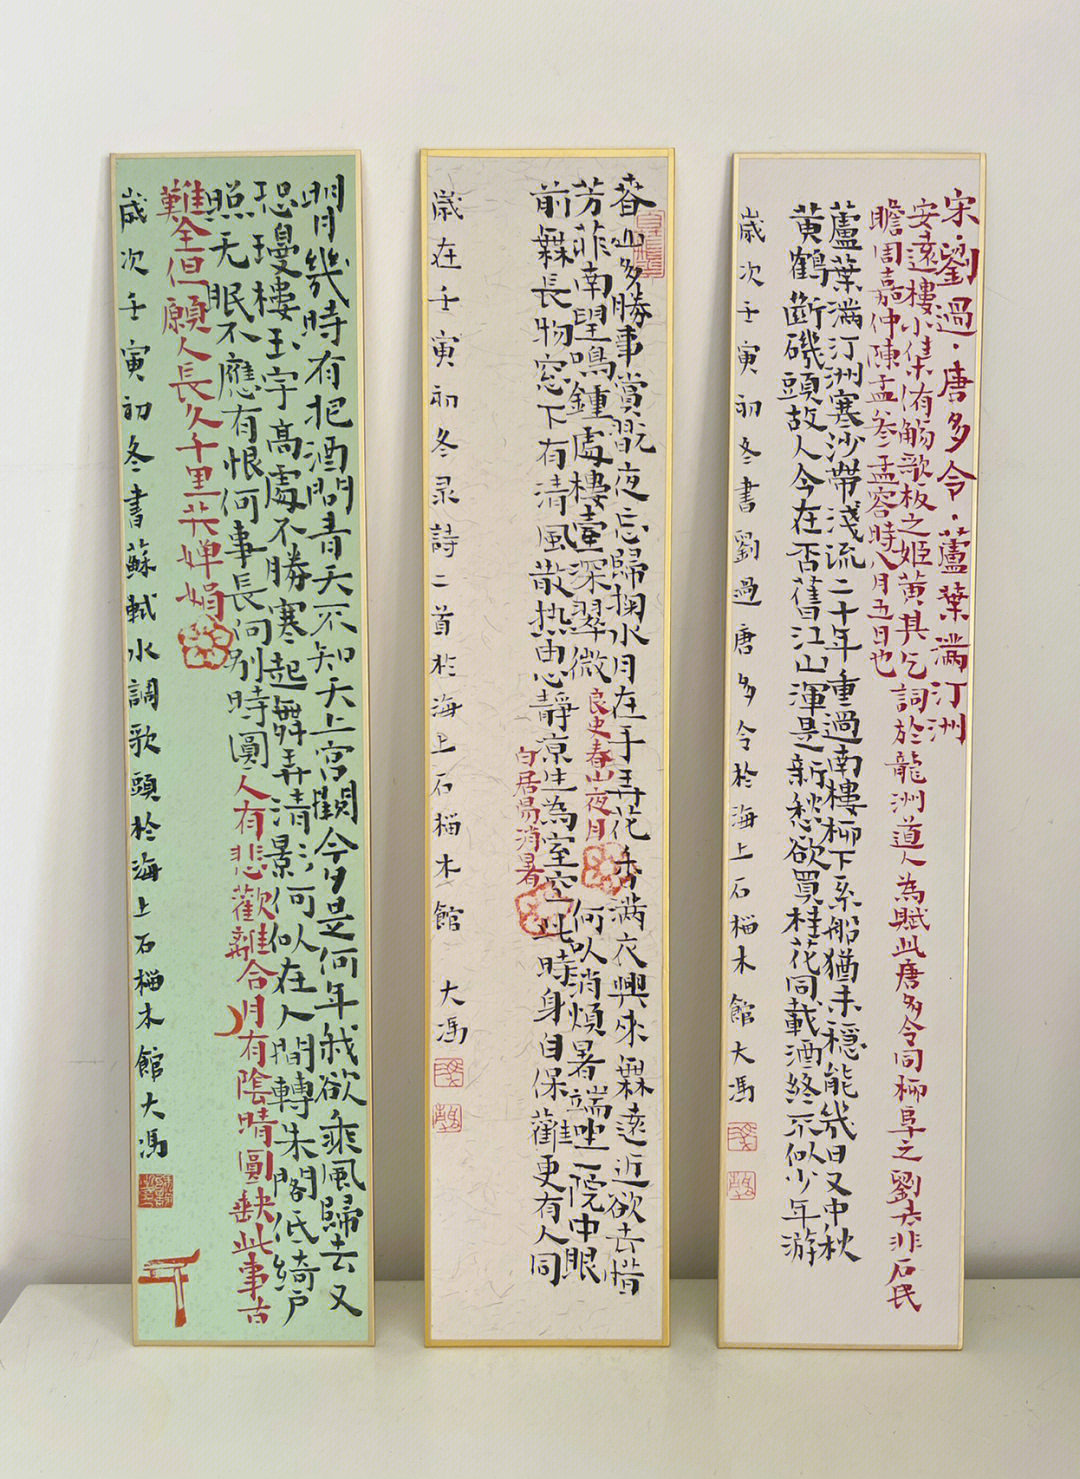 宋·劉過·唐多令·蘆葉滿汀洲
安遠樓小集侑觴歌板之姬黃其乞詞於龍洲道人為賦此唐多令同柳阜之劉去非石民
瞻周嘉仲陳孟參孟容時八月五日也
蘆葉滿汀洲寒沙帶淺流二十年重過南樓柳下系船猶未穩能幾日又中秋
黃鶴斷磯頭故人今在否舊江山渾是新愁欲買桂花同載酒終不似少年游
歲次壬寅初冬書劉過唐多令於海上石榴木館大馮
春山多勝事賞翫夜忘歸掬水月在手弄花香滿衣興來無遠近欲去惜
芳菲南望鳴鐘處樓臺深翠微良史春山夜月何以消煩暑端坐一院中眼
前無長物窓下有清風散热由心靜凉生為室空此時身自保難更有人同
白居易消暑
歲在壬寅初冬录詩二首於海上石榴木館 大馮
明月幾時有把酒問青天不知天上宮闕今夕是何年我欲乘風歸去又
恐瓊樓玉宇高處不勝寒起舞弄清影何似在人間轉朱閣低綺戶
照无眠不應有恨何事長向别時圓人有悲歡離合月有陰晴圓缺此事古
難全但願人長久千里共嬋娟
歲次壬寅初冬書蘇軾水調歌頭於海上石榴木館大馮